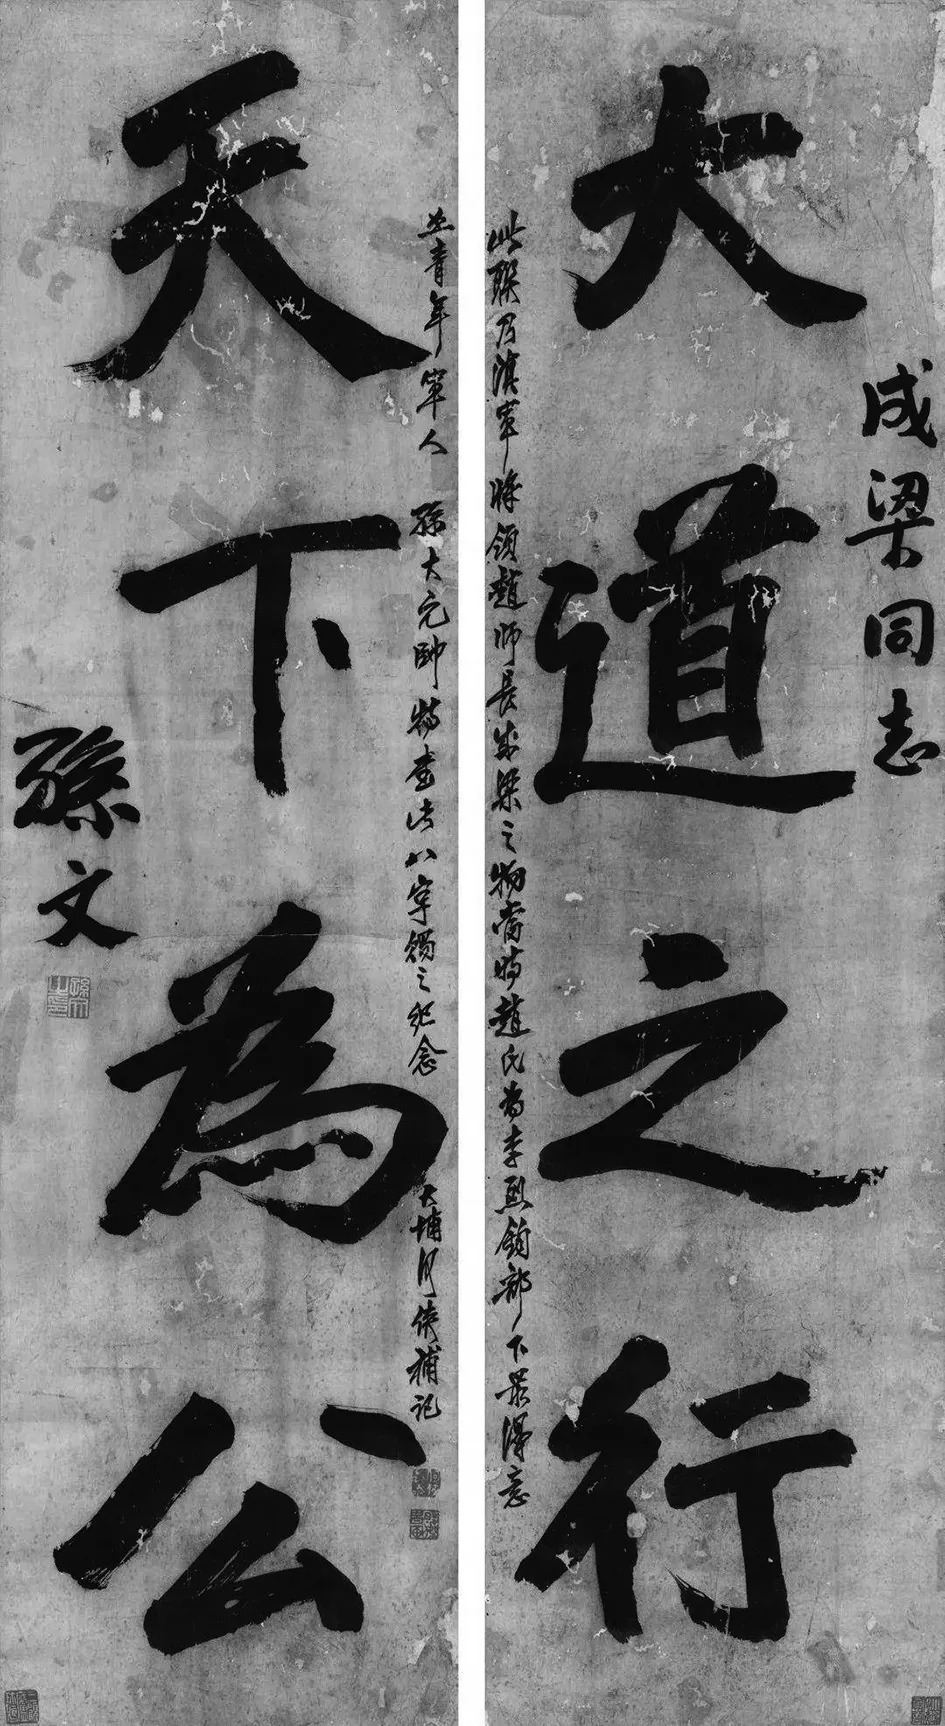 成梁同志
大道之行
此聯乃滇軍將領趙師長成梁之物當時趙氏為李烈鈞部下最得意
之青年軍人　孫大元帥特書此八字獨之紀念
大埔月侠補記
天下為公
孫文
孫文之印